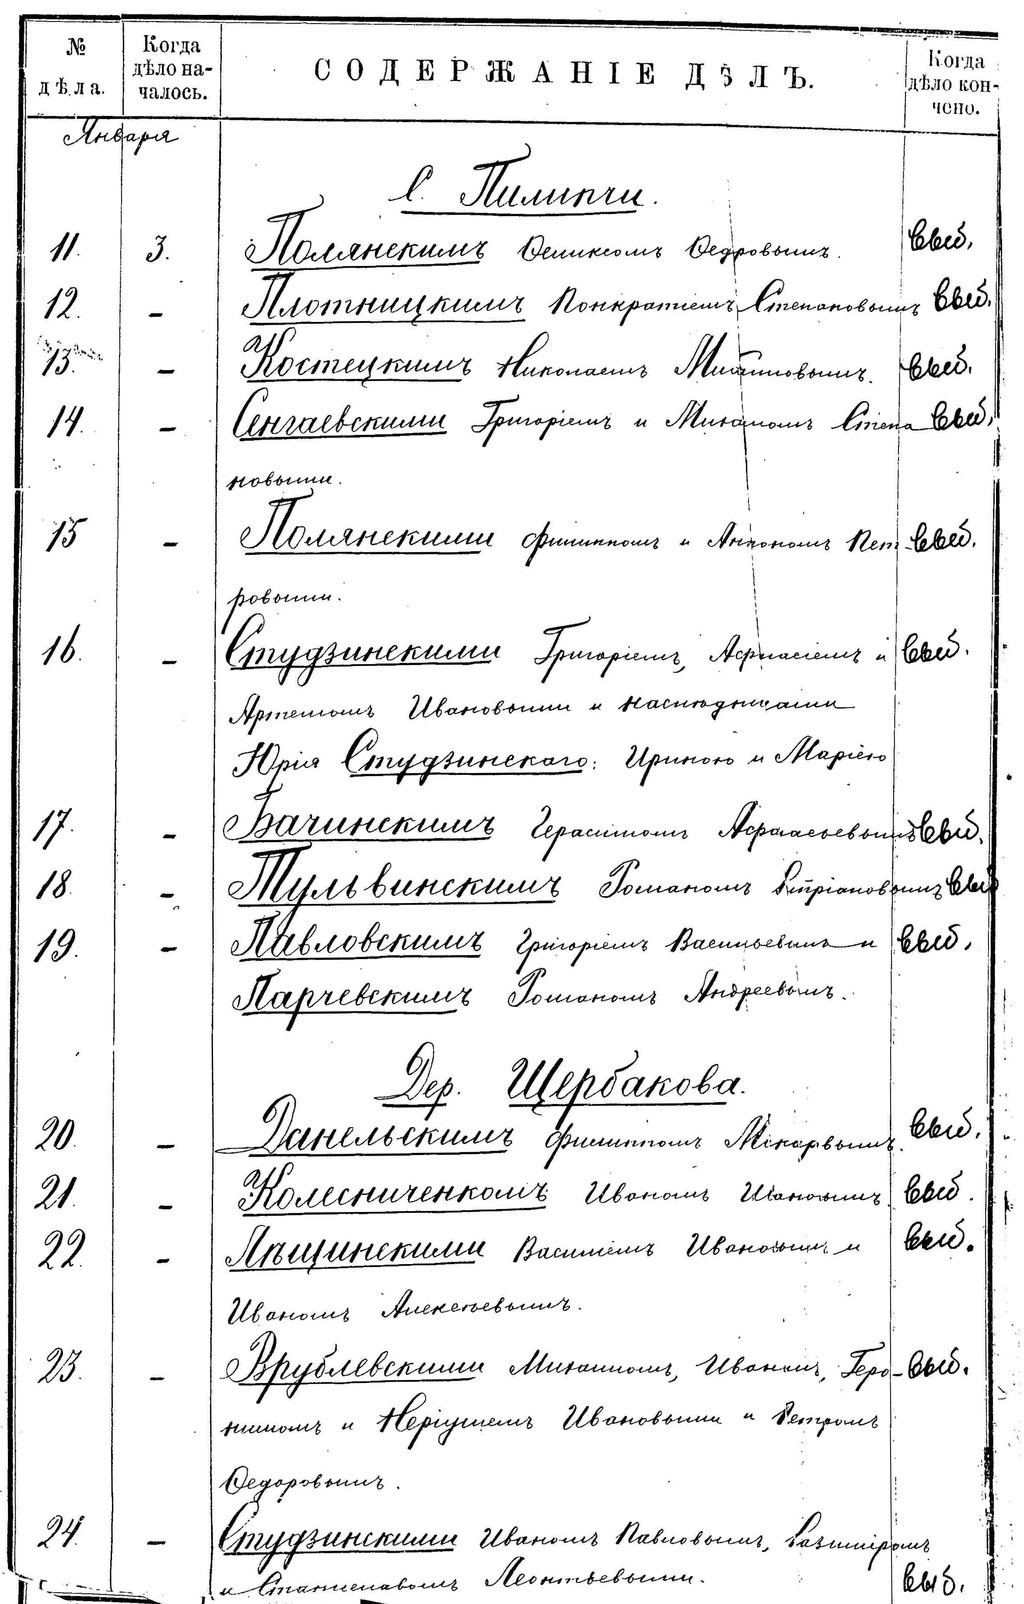 № дѣла.
Когда дѣло началось.
СОДЕРЖАНІЕ ДѢЛЪ.
Когда дѣло кончено.
Января
С. Пилипчи.
11. 3. Полянскимъ Феликсомъ Федровымъ. Выб.
12. — Плотницкимъ Понкратіемъ Степановымъ Выб.
13. — Костецкимъ Николаемъ Выб.
14. — Сенгаевскими Григоріемъ и Михаиломъ Степа Выб.
новыми.
15 — Полянскими Филиппомъ и Антономъ Пет- Выб.
ровыми.
16. — Студзинскими Григоріемъ, Афнасіемъ и Выб.
Артемомъ Ивановыми и наслѣдниками
Юрія Студзинского: Ириною и Маріею
17. — Бачинскимъ Герасимомъ Афанасьевымъ Выб.
18. — Тульвинскимъ Романомъ Выб
19. — Павловскимъ Григоріемъ Васильевымъ и Выб.
Парчевскимъ Романомъ Андреевымъ.
Дер. Щербакова.
20. — Данельскимъ Филиппомъ Макарвымъ. Выб.
21. — Колесниченкомъ Иваномъ Ивановымъ Выб.
22. — Лѣщинскими Василіемъ Ивановымъ и Выб.
Иваномъ Алексѣевымъ.
23. — Врублевскими Михаиломъ, Иваномъ, Геро- Выб.
нимомъ и Ивановыми и Петромъ
Федоровымъ.
24. — Студзинскими Иваномъ Павловымъ, Казиміромъ
и Станиславомъ Леонтьевыми. Выб.